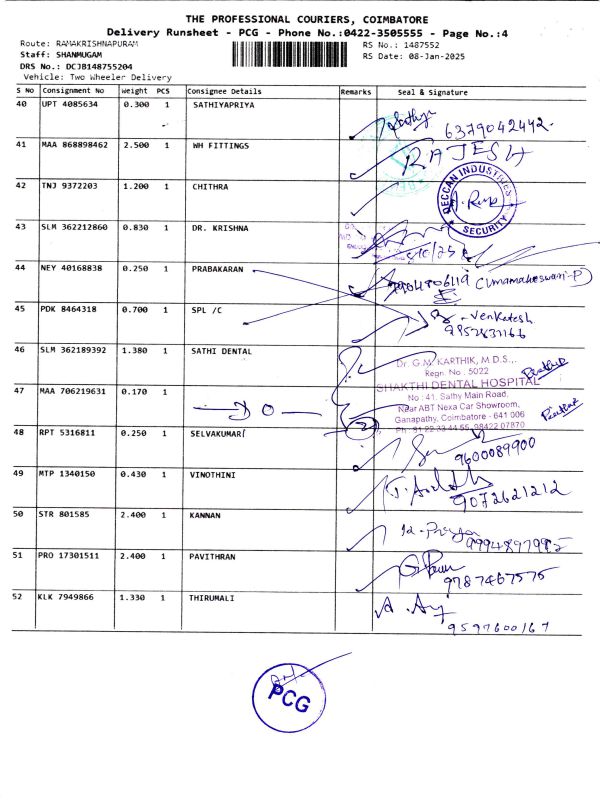 THE PROFESSIONAL COURIERS, COIMBATORE
Delivery Runsheet - PCG - Phone No.:0422-3505555 - Page No.:4
Route: RAMAKRISHNAPURAM RS No.: 1487552
Staff: SHANMUGAM RS Date: 08-Jan-2025
DRS No.: DCJB148755204
Vehicle: Two Wheeler Delivery
S No Consignment No Weight PCS Consignee Details Remarks Seal & Signature
40 UPT 4085634 0.300 1 SATHIYAPRIYA
Sathya
6379042442
41 MAA 868898462 2.500 1 WH FITTINGS
RAJESH
42 TNJ 9372203 1.200 1 CHITHRA
DECCAN INDUSTRIES
SECURITY
43 SLM 362212860 0.830 1 DR. KRISHNA
44 NEY 40168838 0.250 1 PRABAKARAN
(Umamaheswari-P)
45 PDK 8464318 0.700 1 SPL /C
- Venkatesh
46 SLM 362189392 1.380 1 SATHI DENTAL
Dr. G.M. KARTHIK, M D.S.,
Regn. No : 5022
SHAKTHI DENTAL HOSPITAL
47 MAA 706219631 0.170 1
— DO —
No : 41, Sathy Main Road,
Near ABT Nexa Car Showroom,
Ganapathy, Coimbatore - 641 006
Ph : 91 22 33 44 55, 98422 07870
48 RPT 5316811 0.250 1 SELVAKUMARI
9600089900
49 MTP 1340150 0.430 1 VINOTHINI
9072621212
50 STR 801585 2.400 1 KANNAN
51 PRO 17301511 2.400 1 PAVITHRAN
9787467575
52 KLK 7949866 1.330 1 THIRUMALI
9597600167
PCG